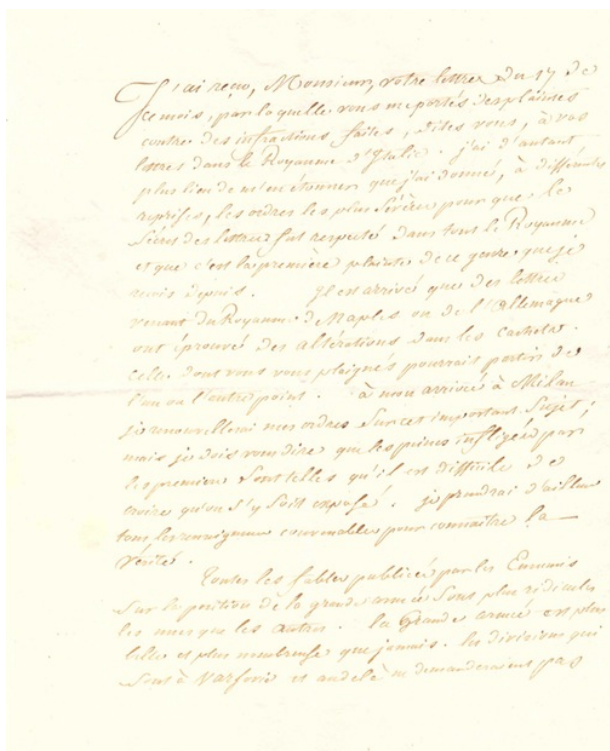 J'ai reçu, Monsieur, votre lettre du 17 de
ce mois, par laquelle vous me portés des plaintes
contre des infractions faites, dites vous, à vos
lettres dans le Royaume d'Italie. j'ai d'autant
plus lieu de m'en étonner que j'ai donné, à différentes
reprises, les ordres les plus sévères pour que le
sécret des lettres fut respecté dans tout le Royaume
et que c'est la première plainte de ce genre que je
reçois depuis. Il est arrivé que des lettres
venant du Royaume de Naples ou de l'Allemagne
ont éprouvé des altérations dans les cachets.
celle dont vous vous plaignés pourrait partir de
l'un ou l'autre point. à mon arrivée à Milan
je renouvellerai mes ordres sur cet important sujet;
mais je dois vous dire que les peines infligées par
les premiers sont telles qu'il est difficile de
croire qu'on s'y soit exposé. je prendrai d'ailleurs
tous les renseignemens convenables pour connaître la
vérité.
Toutes les fables publiées par les Ennemis
sur la position de la grande armée sont plus ridicules
les unes que les autres. la Grande armée est plus
belle et plus nombreuse que jamais. les divisions qui
sont à Varsovie et audelà ne demanderaient pas